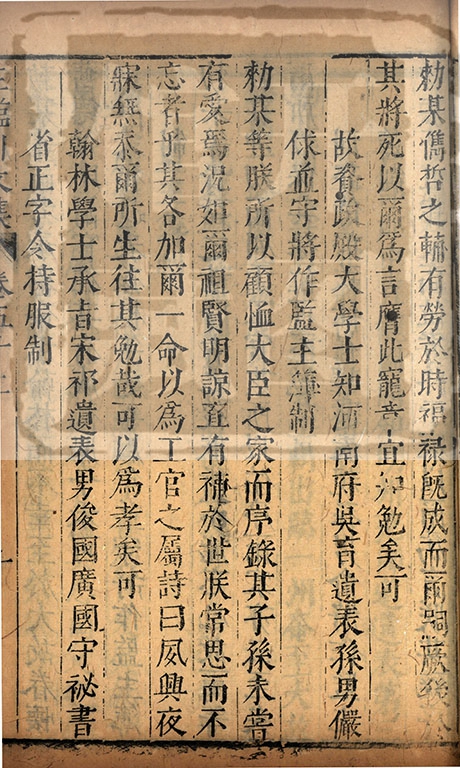 勑某儁哲之輔有勞於時福祿旣成而爾嗣厥後於
其將死以爾爲言膺此寵 宜 勉矣可
故資政殿大學士知河南府吳育遺表孫男儼
俅並守將作監主簿制
勑某等朕所以顧恤大臣之家而序錄其子孫未嘗
有愛焉況如爾祖賢明諒直有補於世朕常思而不
忘者乎其各加爾一命以爲工官之屬詩曰夙興夜
寐無忝爾所生往其勉哉可以爲孝矣可
翰林學士承旨宋祁遺表男俊國廣國守祕書
省正字令持服制